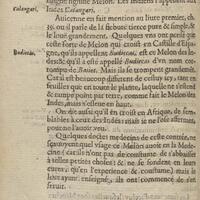 Indes Calangari.
Calangari,
Auicenne en fait mention au liure premier, ch.
39. ou il parle de sa faculté sans pure & simple, &
le loue grandement. Quelques vns ont pensé que
cette sorte de Melon qui croist en Castille d'Espa-
Budiecas.
gne, qu'ils appellent Budiecas, est ce Melon des In-
des; & qu'il a esté appellé Budiecas d'vn nom cor-
rompu de Batiec. Mais ils se trompent grandemēt.
Car il est beaucoup different de cestuy cy, tant en
feuilles que en toute la plante, laquelle ne s'estend
pas en tant de rameaux, comme fait le Melon des
Indes, mais s'esleue en haut.
On dit aussi qu'il en croist en Affrique, de sem-
blables à ceux des Indes: mais ie ne l'ose affermer,
pour ne l'auoir veu.
Quelques doctes medecins de cette contrée, ne
sçauoyent quel vsage ce Melon auoit en la Mede-
cine: car ils n'ont pas de coustume de s'abaisser à
telles petites choses; & ne se fondent en leurs
cures, qu'en l'experience & coustume; mais ie
leur ayant enseigné, ils ont commencé de s'en
seruir.